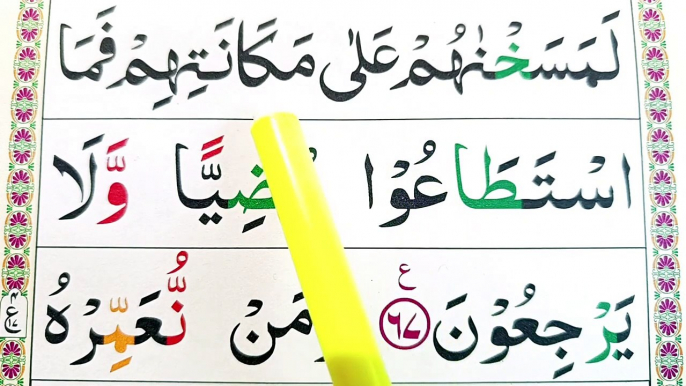 لَمَسَخْنٰهُمْ عَلٰى مَكَانَتِهِمْ فَمَا
اسْتَطَاعُوْا ضِيًّا وَّلَا
يَرْجِعُوْنَ ع ٦٧ مَنْ نُّعَمِّرْهُ